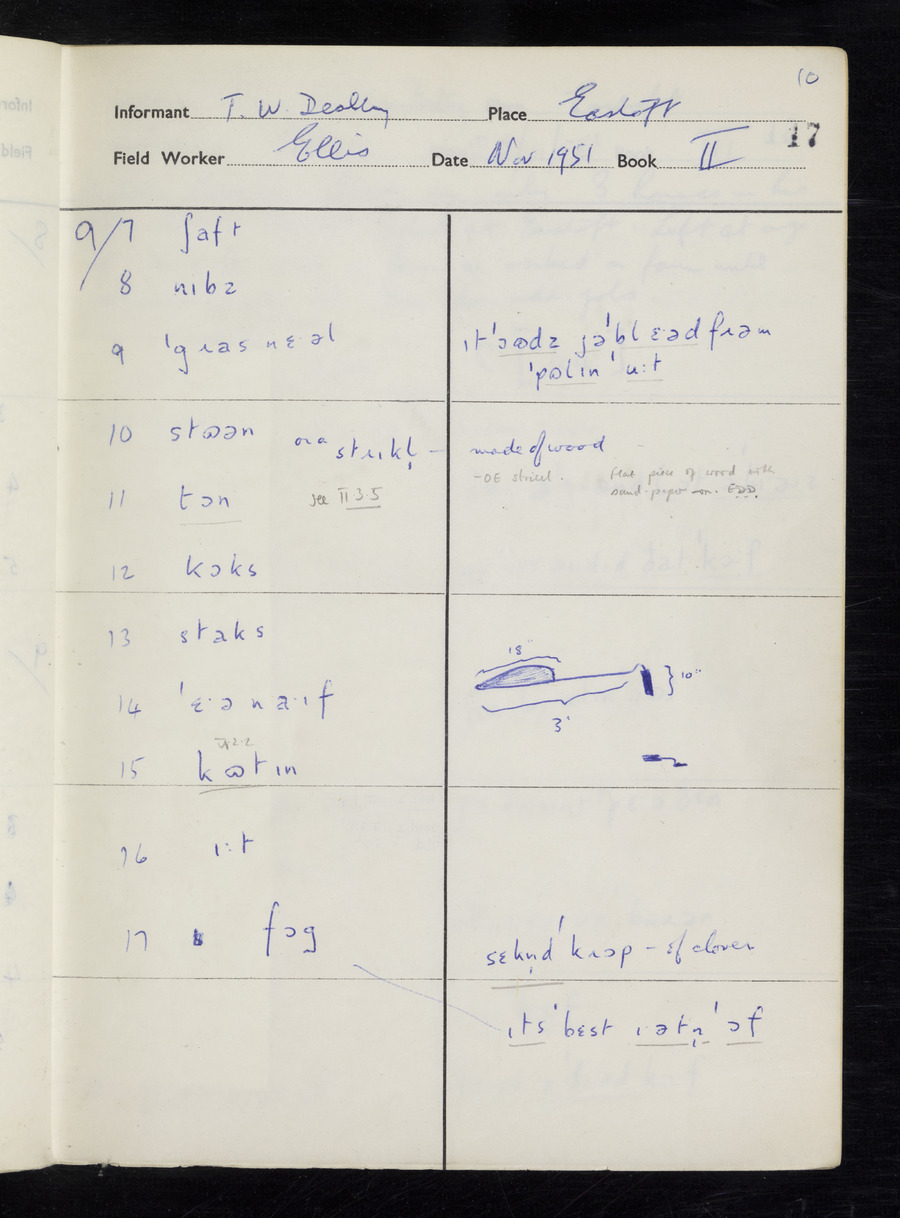 10
Informant T. W. Place Eastoft
17
Field Worker Ellis Date Nov 1951 Book II
9/7 ʃaft
8 nɪbz
9 ˈgɹasnɛəl ɪtˈɔʊdz jəˈblɛəd fɹəm
ˈpʊlɪn ˈu:t
10 stʊən ɒɹə stɹɪkl̩ – made of wood
– OE flat piece of wood with
sand-paper on. EDD.
11 tɔn see II.3.5
12 kɔks
13 staks
18"
10"
14 ˈɛ·ənaɪf
3'
15 kʊtɪn
16 ɪ:t
17 fɔg
sɛkn̩d ˈkɹɔp – of clover
ɪts ˈbɛst ɪətn̩ ˈɔf